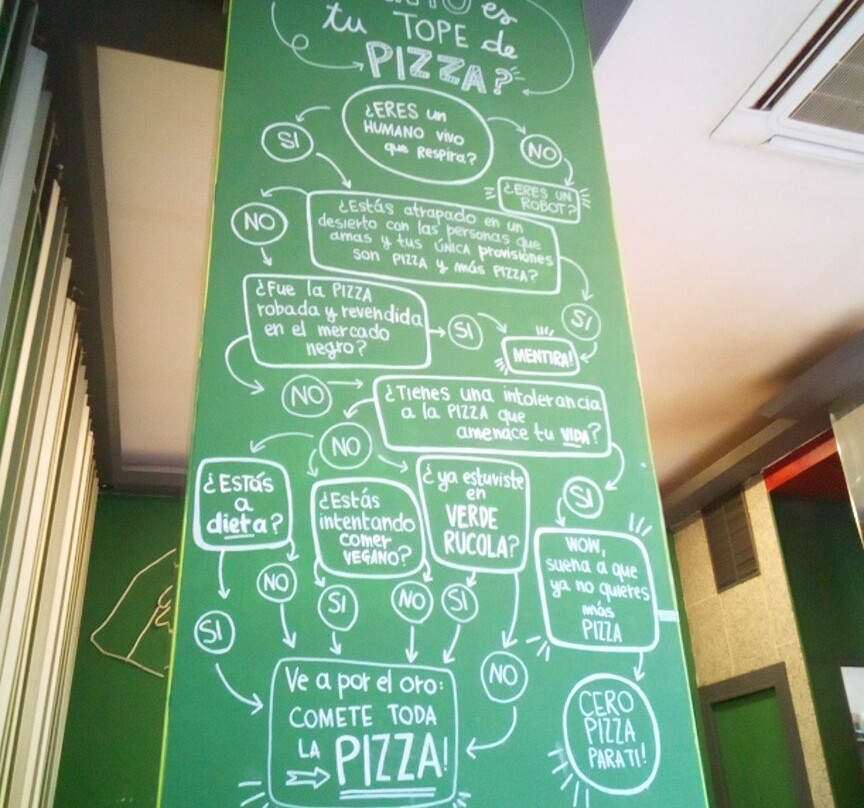 es
tu TOPE de
PIZZA?
¿ERES un
HUMANO VIVO
que RESPIRA?
SI
NO
¿ERES UN
ROBOT?
¿Estás atrapado en un
desierto con las personas que
amas y tus ÚNICA provisiones
son PIZZA y más PIZZA?
NO
SI
¿Fue la PIZZA
robada y revendida
en el mercado
negro?
SI
MENTIRA!
NO
¿Tienes una intolerancia
a la PIZZA que
amenace tu VIDA?
NO
SI
¿Estás
a
dieta?
¿Estás
intentando
comer
VEGANO?
¿ya estuviste
en
VERDE
RUCOLA?
WOW,
suena a que
ya no quieres
más
PIZZA
NO
SI
SI
NO
SI
NO
Ve a por el oro:
COMETE TODA
LA
PIZZA!
CERO
PIZZA
PARA TI!